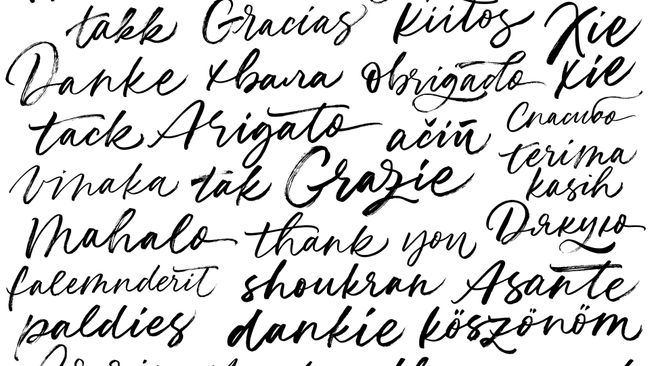 takk Gracias kiitos Xie
Danke хвала Obrigado xie
tack Arigato ačiū Спасибо
vinaka tak Grazie terima
kasih
Mahalo thank you Дякую
falemnderit shoukran Asante
paldies dankie köszönöm